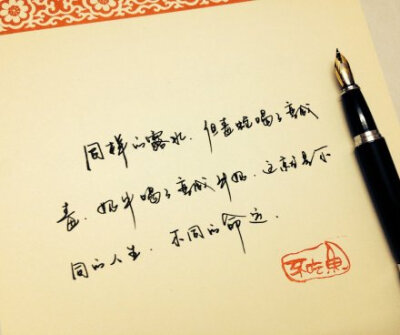 同样的露水，但毒蛇喝了变成
毒，奶牛喝了变成牛奶，这就是不
同的人生，不同的命运.
不吃鱼